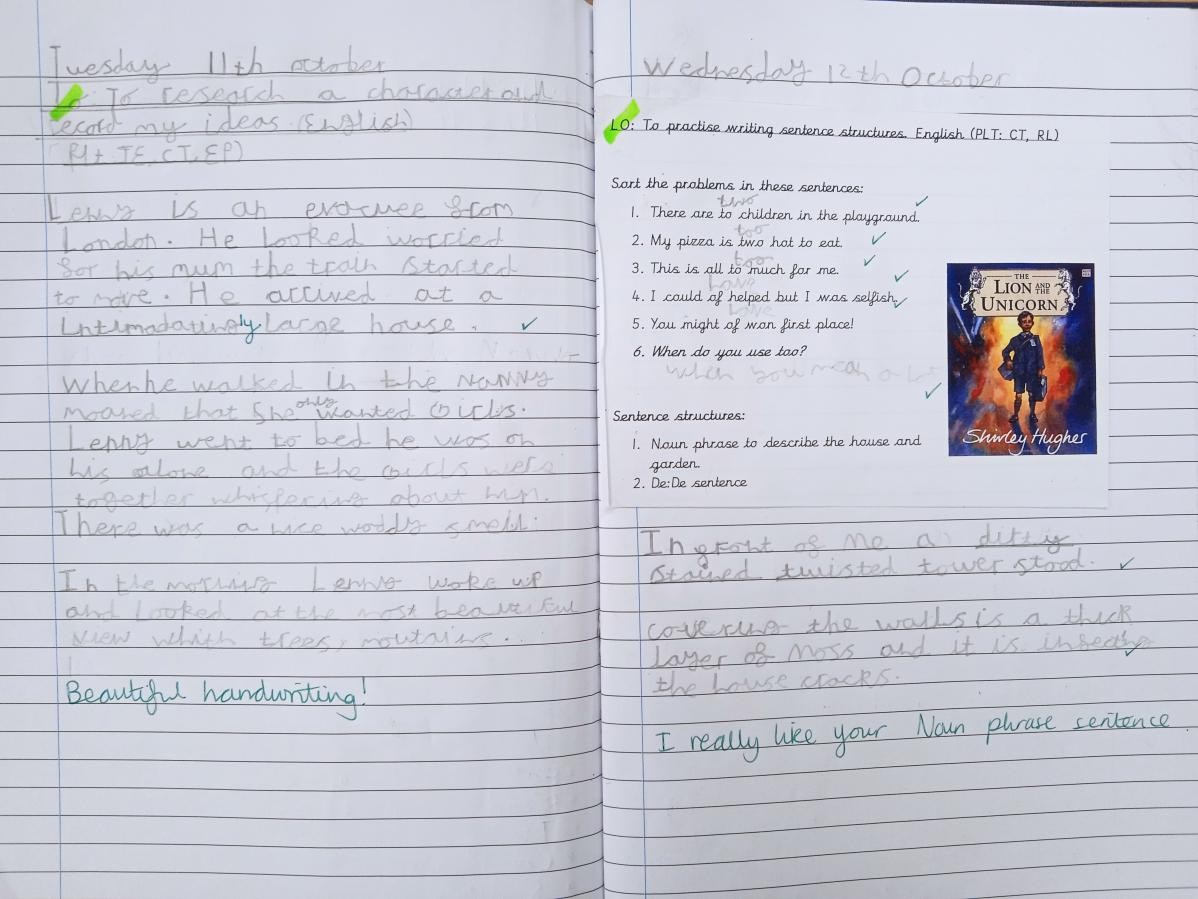 Tuesday 11th october
To research a character and
record my ideas (English)
Lenny is an evacuee from
London. He looked worried
for his mum the train started
to move. He arrived at a
intimadatingly large house.
When he walked in the Nanny
moaned that she only wanted Girls.
Lenny went to bed he was on
his alone and the Girls were
together whispering about him.
There was a nice woddy smell.
In the morning Lenny woke up
and looked at the most beautiful
view which trees, moutains.
Beautiful handwriting!
Wednesday 12th October
LO: To practise writing sentence structures. English (PLT: CT, RL)
Sort the problems in these sentences:
two
1. There are to children in the playground.
too
2. My pizza is two hot to eat.
too
3. This is all to much for me.
have
4. I could of helped but I was selfish.
have
5. You might of won first place!
6. When do you use too?
when you mean a lot
Sentence structures:
1. Noun phrase to describe the house and
garden.
2. De:De sentence
THE
LION AND THE
UNICORN
Shirley Hughes
In front of me a ditty
stained twisted tower stood.
covering the walls is a thick
layer of moss and it is infecting
the house cracks.
I really like your Noun phrase sentence